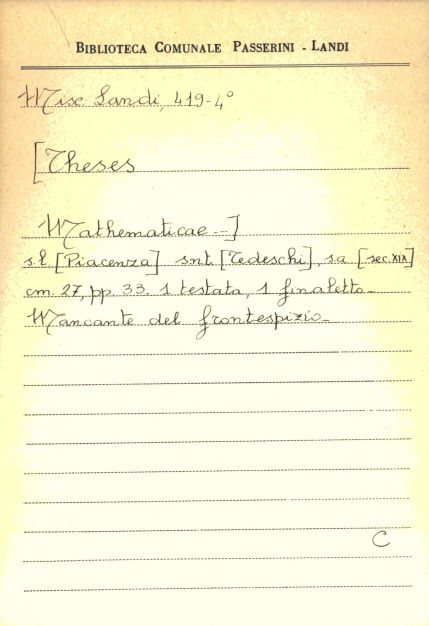 BIBLIOTECA COMUNALE PASSERINI - LANDI
Misc Landi, 419-4°
[Theses
Mathematicae --]
s.l [Piacenza] snt [Tedeschi], s.a [sec.XIX]
cm. 27, pp. 33. 1 testata, 1 finaletto-
Mancante del frontespizio-
C